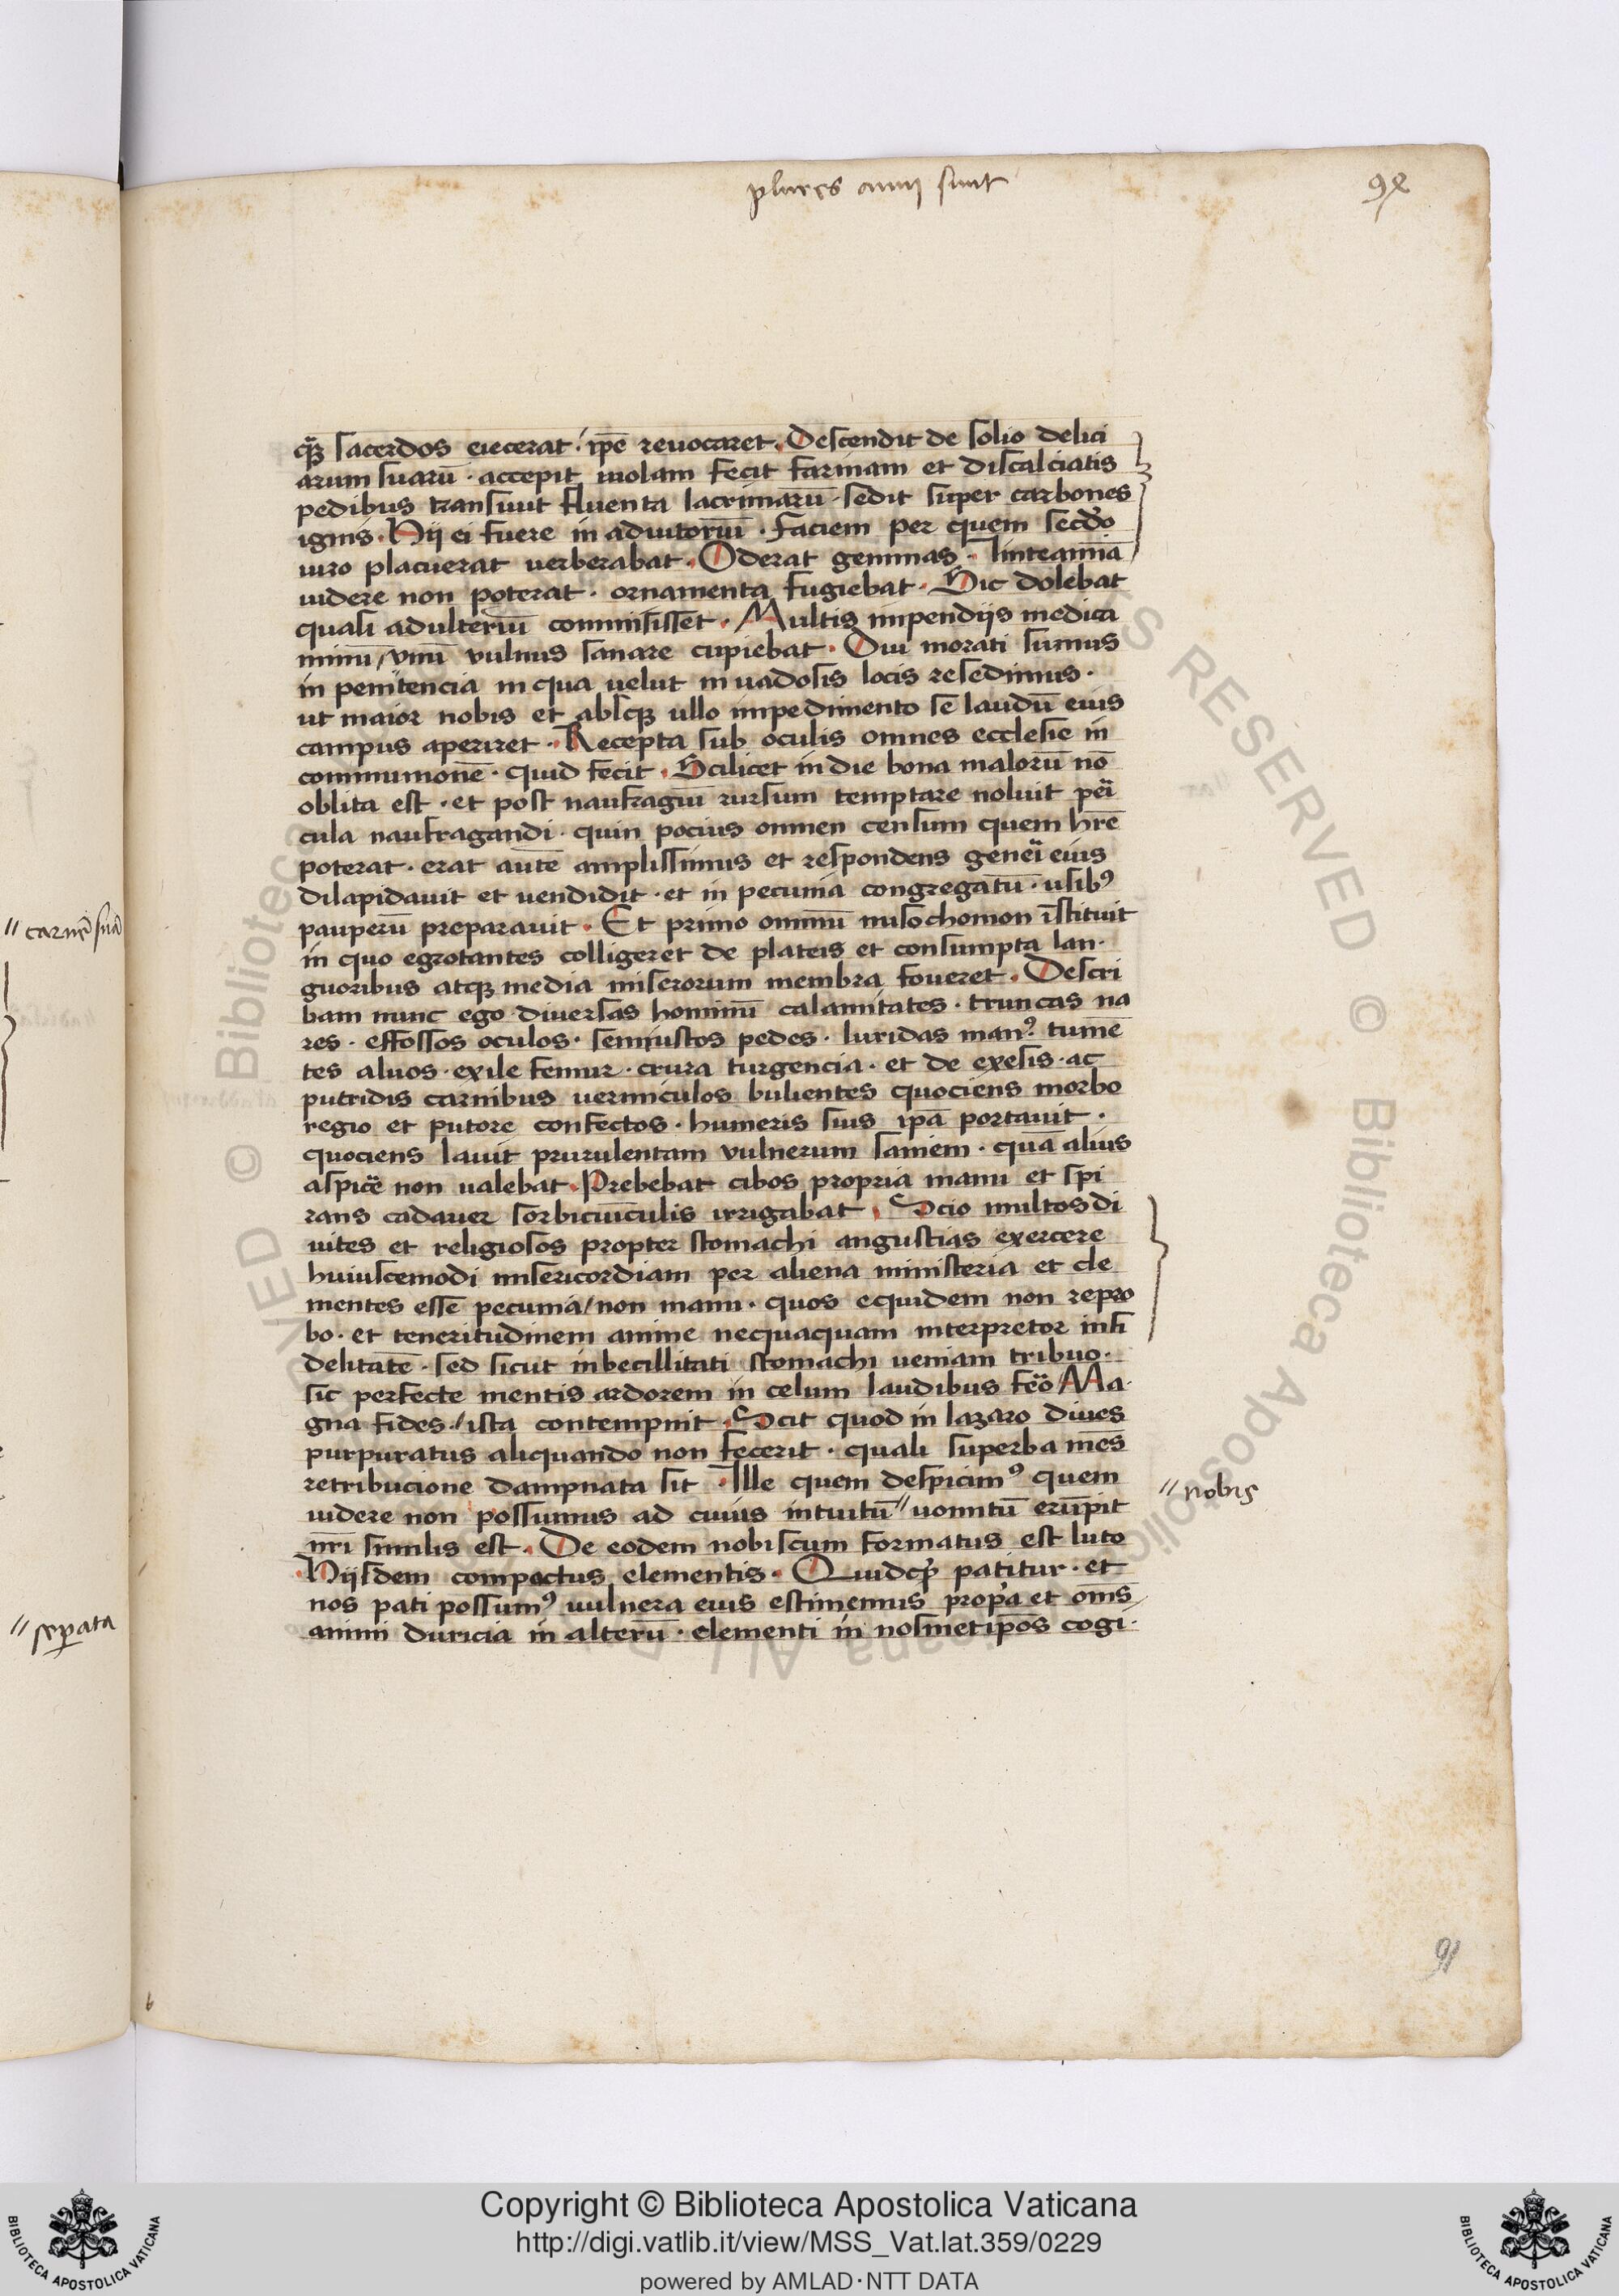 plures anni sunt
qȝ sacerdos eiecerat · ip̄e reuocaret · Descendit de solio delici
arum suarū · accepit molam fecit farinam et discalciatis
pedibus transiuit fluenta lacrimarū · sedit super carbones
ignis · Hij ei fuere in adiutoriū · faciem per quem secdo
uiro placuerat uerberabat · Oderat gemmas · linteamīa
uidere non poterat · ornamenta fugiebat · Sic dolebat
quasi adulteriū commisisset · Multis impendijs medica
minū / vnū vulnus sanare cupiebat · Diu morati sumus
in penitencia in qua uelut in uadosis locis resedimus ·
ut maior nobis et absqȝ ullo impedimento se laudū eius
campus aperiret · Recepta sub oculis omnes ecclesie in
communionē · quid fecit · Scilicet in die bona malorū nō
oblita est · et post naufragiū rursum temptare noluit peī
cula naufragandi · quin pocius omnen censum quem hr̄e
poterat · erat autē amplissimus et respondens geneī eius
dilapidauit et uendidit · et in pecunia congregatū · usibꝰ
pauperū preparauit · Et primo omniū nusochomon īstituit
in quo egrotantes colligeret de plateis et consumpta lan·
guoribus atqȝ media miserorum membra foueret · Descri
bam nunc ego diuersas hominū calamitates · truncas na
res · effossos oculos · semiustos pedes · luridas manꝰ · tumē
tes aluos · exile femur · crura turgencia · et de exesis · ac
putridis carnibus uermiculos bulientes quociens morbo
regio et putore confectos · humeris suis ip̄a portauit ·
quociens lauit prurulentam vulnerum saniem · quā alius
aspic̄e non ualebat · Prebebat cibos propria manu et spi
rans cadauer sorbiciūculis irrigabat · Scio multos di
uites et religiosos propter stomachi angustias exercere
huiuscemodi misericordiam per aliena ministeria et cle
mentes esse pecunia / non manu · quos equidem non repro
bo · et teneritudinem anime nequaquam interpretor infi
delitatē · sed sicut inbecillitati stomachi ueniam tribuo ·
sic perfecte mentis ardorem in celum laudibus feō / Ma·
gna fides · / ista contempnit · Scit quod in lazaro diues
purpuratus aliquando non fecerit · quali superba mēs
retribucione dampnata sit · Ille quem despicimꝰ quem
uidere non possumus ad cuius intuitū // uomitū erūpit
nr̄i similis est · De eodem nobiscum formatus est luto
Hijsdem compactus elementis · Quidqͥd patitur · et
nos pati possumꝰ uulnera eius estimemus prop̄a et om̄s /
animi duricia in alterū · clementi in nosmetip̄os cogi·
// nobis
// carnē suā
// sep̄ata
91
Copyright © Biblioteca Apostolica Vaticana
http://digi.vatlib.it/view/MSS_Vat.lat.359/0229
powered by AMLAD·NTT DATA